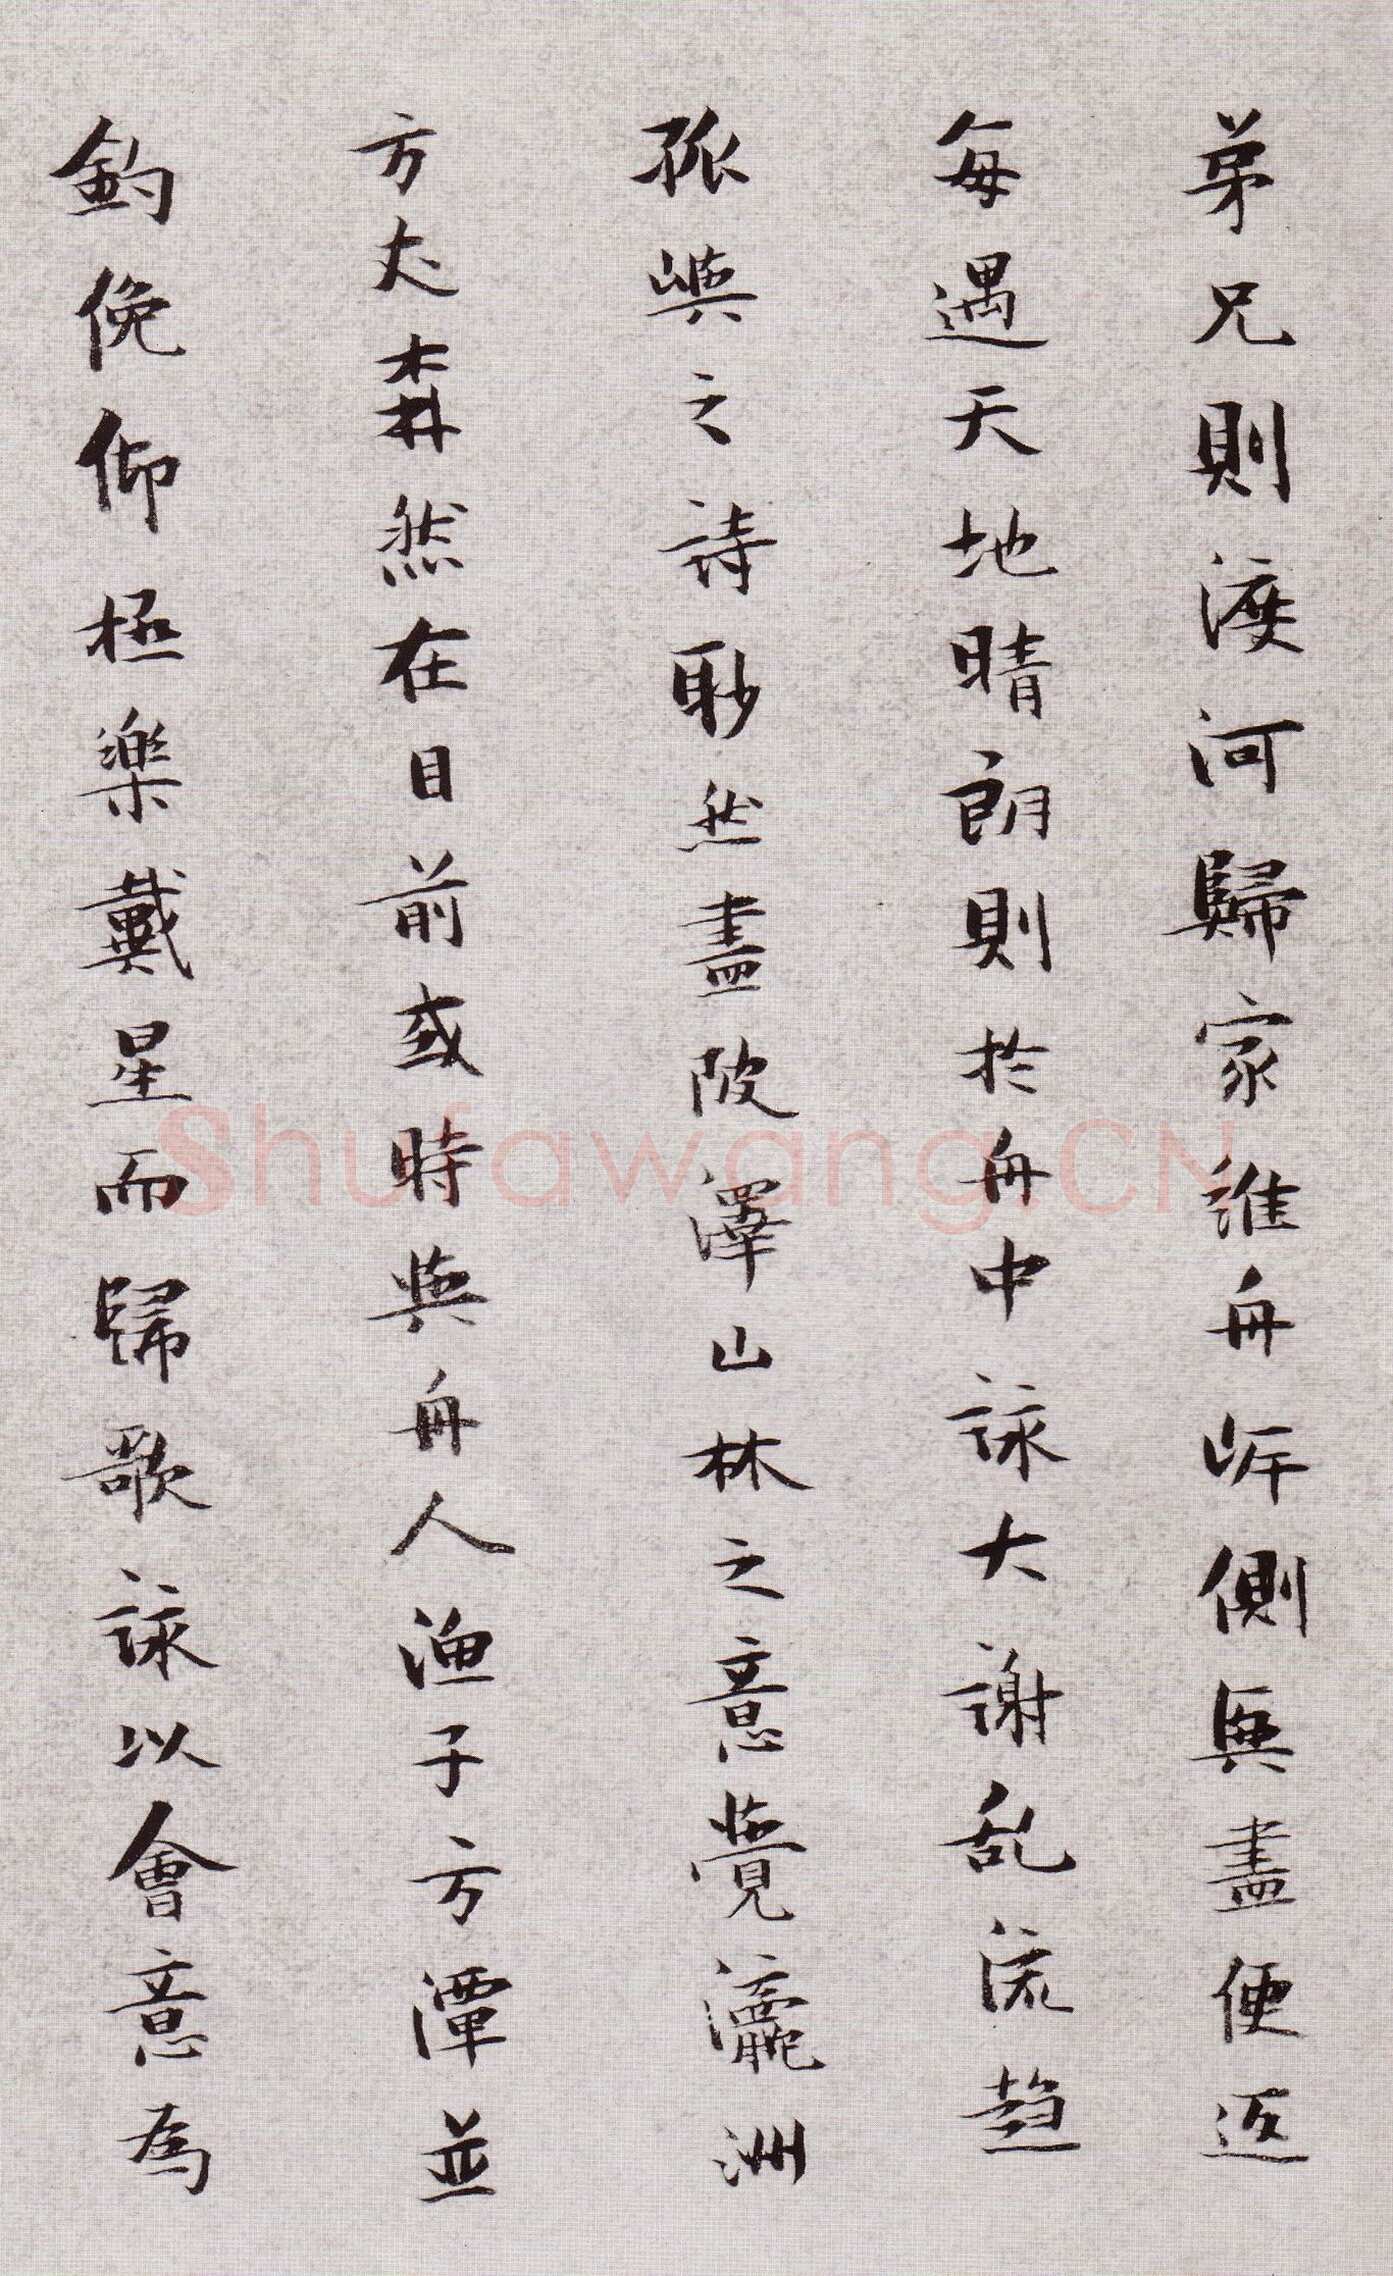 弟兄則渡河歸家維舟岸側興盡便返
每遇天地晴朗則於舟中詠大謝乱流趋
孤嶼之詩眇然盡陂澤山林之意覺瀛洲
方丈森然在目前或時與舟人漁子方潭並
釣俛仰極樂戴星而歸歌詠以會意為
Shufawang.CN